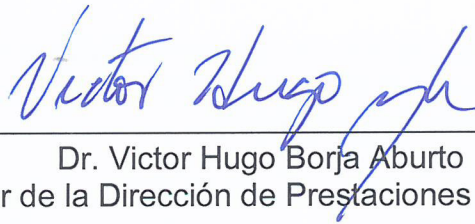 Victor Hugo
Dr. Victor Hugo Borja Aburto
r de la Dirección de Prestaciones